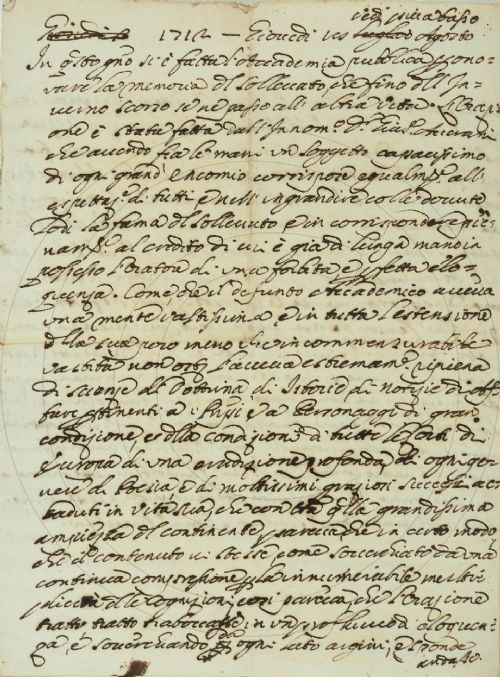 vedi più a basso
1712 — Giovedì Agosto
In q.sto gno si è fatta l'Accademia pubblica p
vare la memoria dl Sollevato che fino dll'In-
verno scorso se ne passò all'altra vita. L'Orazi-
one è stata fatta dall'Innom.o D.
che avendo fra le mani un soggetto capacissimo
di ogni grand'encomio corrispose equalm.te all'
espettaz.e di tutti e nell'ingrandire colle dovute
lodi la fama dl Sollevato e in corrispondere pie-
nam.te al credito di cui è già di lunga mano in
possesso l'Orator di una forbita e pfetta elo-
quenza. Come che il defunto Accademico aveva
una mente vastissima e in tutta l'estensione
dlla sua poco meno che incommensurabile
vastità non l'aveva estremam.te ripiena
di scienze di Dottrina di Istorie di notizie di
ture ptinenti a i Pssi e a Personaggi di gran
condizione, e dlla condizione di tutte le Corti di
Europa di una erudizione profonda di ogni ge-
nere di Poesia e di moltissimi graziosi successi ac
caduti in vita sua, che con tutta qlla grandissima
ampiezza dl continente, pareva che in certo modo
che il contenuto vi stesse come soverchiato da una
continua compressione plla innumerabile
dlle cognizioni, così pareva, che l'Orazione
tratto tratto traboccasse in un profluvio d'eloquen-
za e soverchiando da ogni lato argini, e sponde
andasse